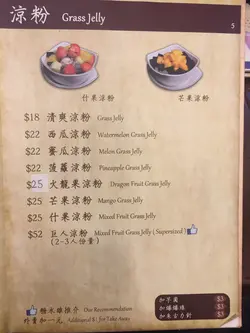 涼粉 Grass Jelly
5
什果涼粉
芒果涼粉
$18 清爽涼粉 Grass Jelly
$22 西瓜涼粉 Watermelon Grass Jelly
$22 蜜瓜涼粉 Melon Grass Jelly
$22 菠蘿涼粉 Pineapple Grass Jelly
$25 火龍果涼粉 Dragon Fruit Grass Jelly
$25 芒果涼粉 Mango Grass Jelly
$25 什果涼粉 Mixed Fruit Grass Jelly
$52 巨人涼粉 Mixed Fruit Grass Jelly (Supersized)
(2-3人份量)
糖水雄推介 Our Recommendation
外賣加一元 Additional $1 for Take Away
加芋圓 $3
加爆爆珠 $3
加朱古力針 $3